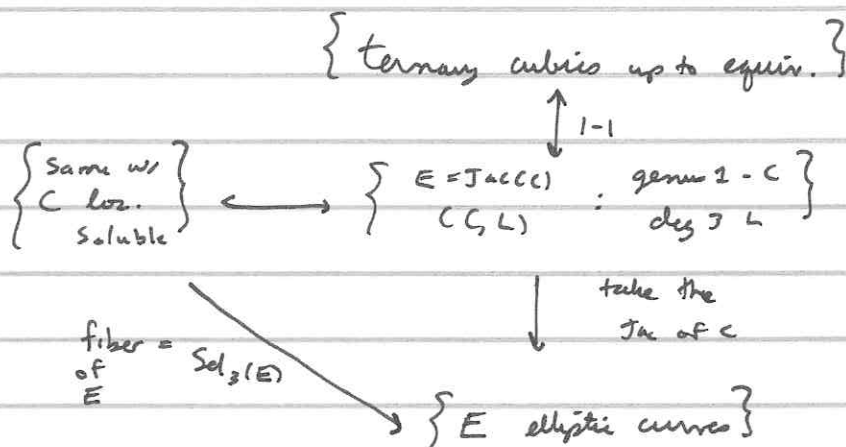 { ternary cubics up to equiv. }
1-1
{ Same w/ C loc. soluble } ⟷ { E = Jac(C) (C, L) : genus 1 - C deg 3 L }
take the
Jac of C
fiber = Sel₃(E)
of
E
{ E elliptic curves }